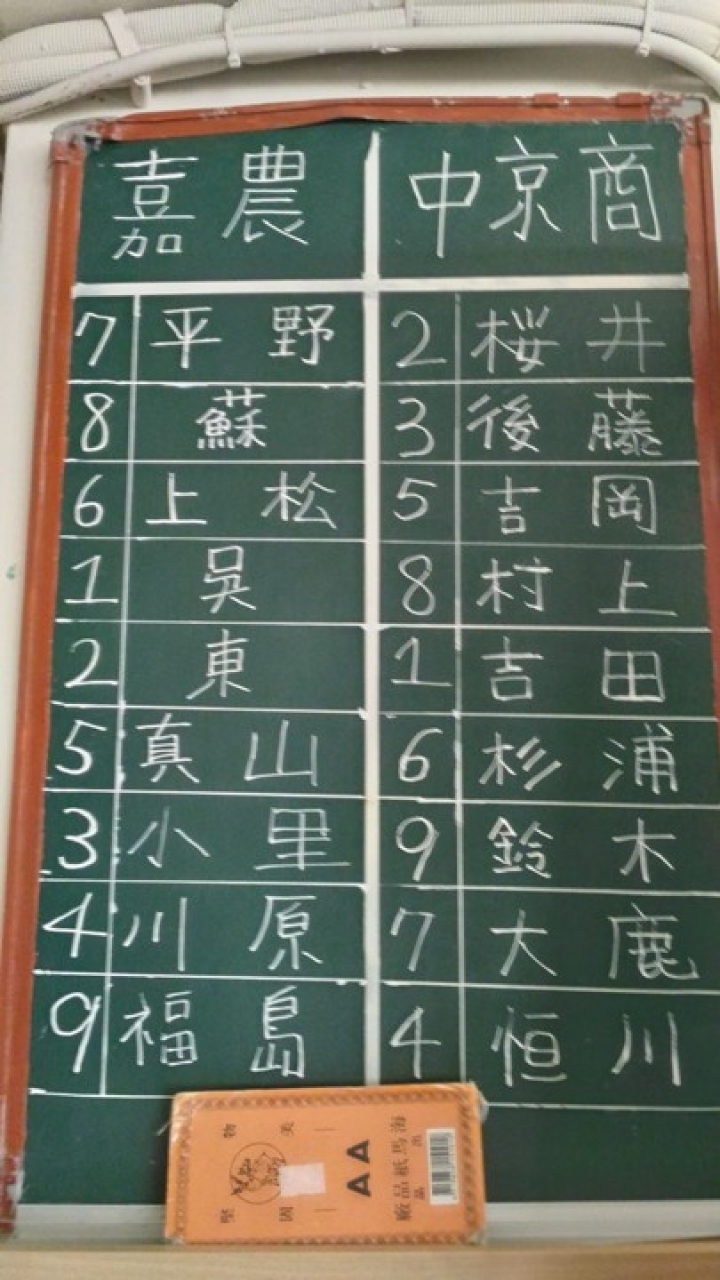 嘉農 中京商
7 平野 2 桜井
8 蘇 3 後藤
6 上松 5 吉岡
1 吳 8 村上
2 東 1 吉田
5 真山 6 杉浦
3 小里 9 鈴木
4 川原 7 大鹿
9 福島 4 恒川
物美
堅固
AA
海馬紙品廠